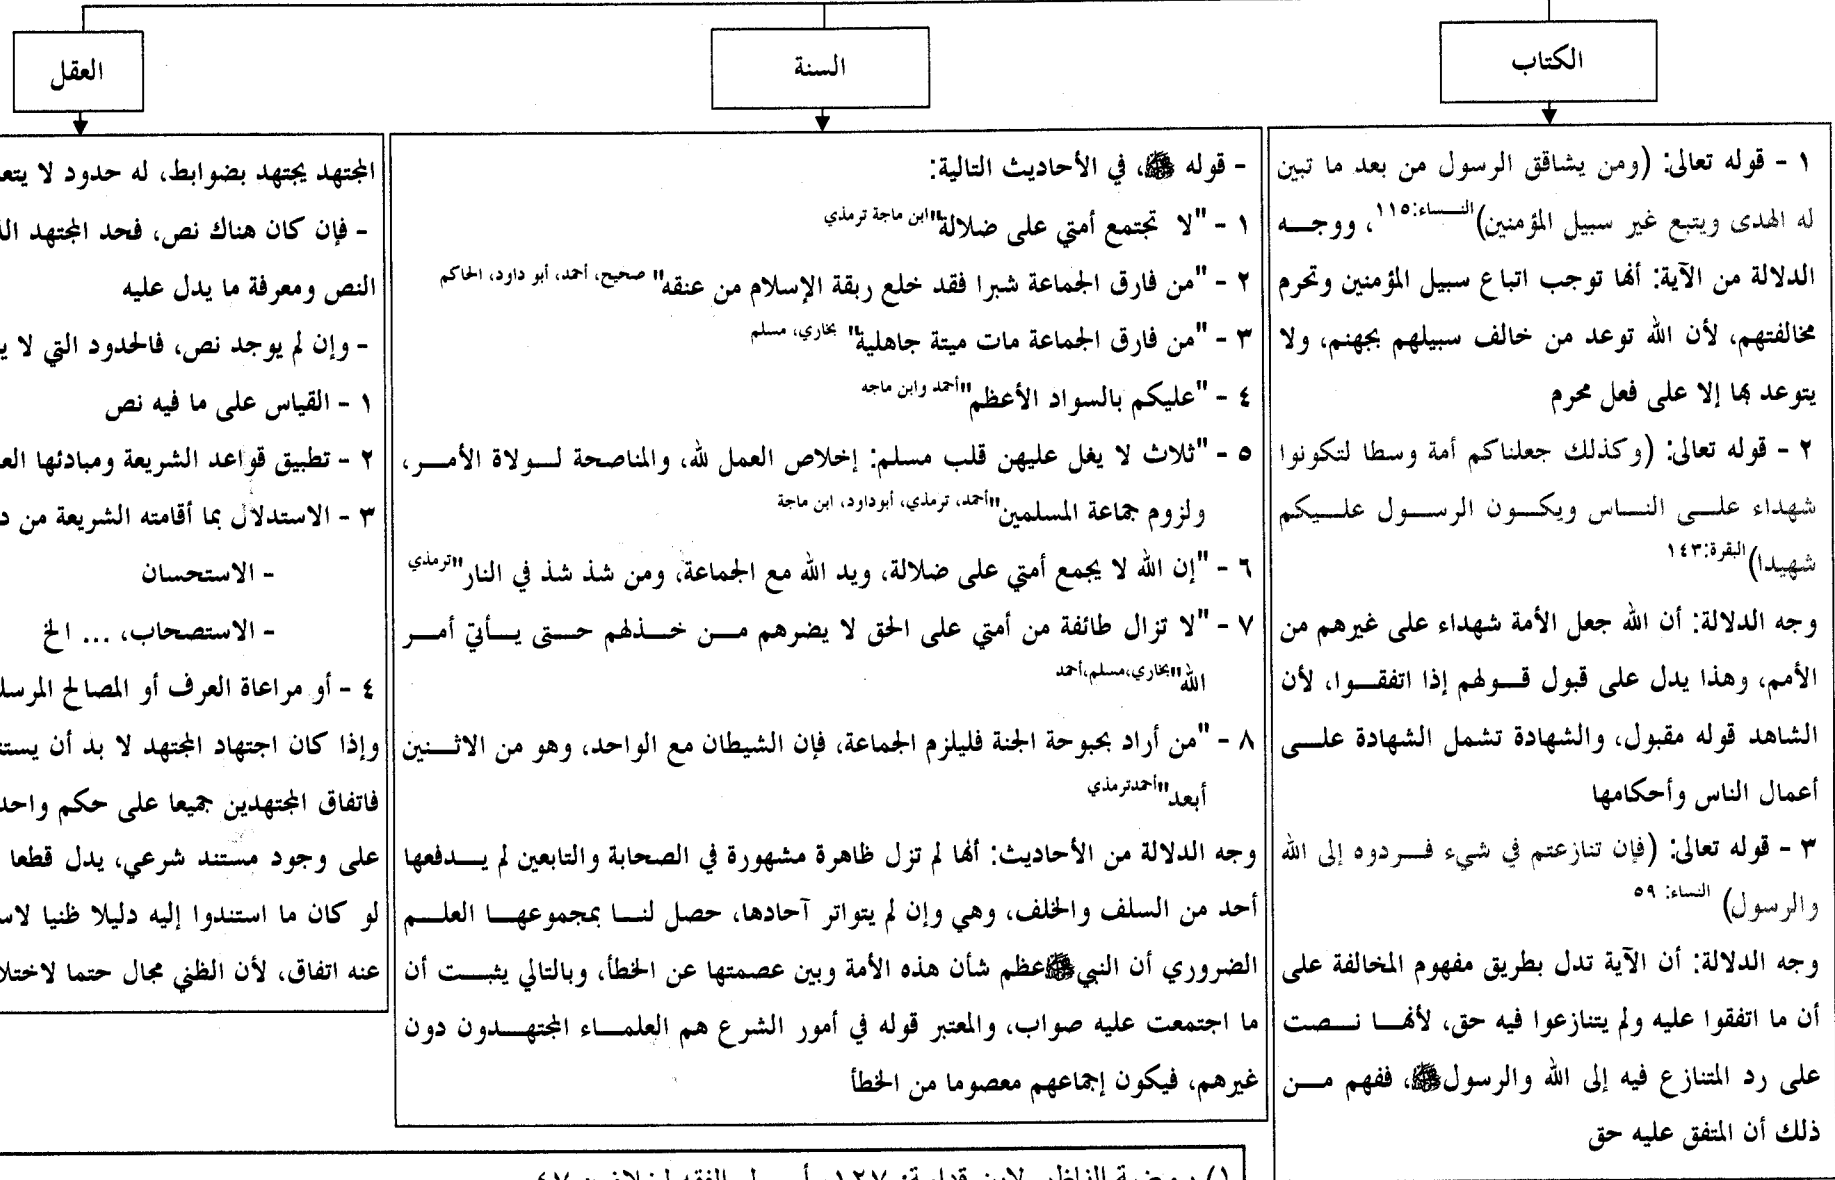 الكتاب
السنة
العقل
١ - قوله تعالى: (ومن يشاقق الرسول من بعد ما تبين
له الهدى ويتبع غير سبيل المؤمنين) النساء:١١٥، ووجه
الدلالة من الآية: أنها توجب اتباع سبيل المؤمنين وتحرم
مخالفتهم، لأن الله توعد من خالف سبيلهم بجهنم، ولا
يتوعد بها إلا على فعل محرم
٢ - قوله تعالى: (وكذلك جعلناكم أمة وسطا لتكونوا
شهداء على الناس ويكون الرسول عليكم
شهيدا) البقرة:١٤٣
وجه الدلالة: أن الله جعل الأمة شهداء على غيرهم من
الأمم، وهذا يدل على قبول قولهم إذا اتفقوا، لأن
الشاهد قوله مقبول، والشهادة تشمل الشهادة على
أعمال الناس وأحكامها
٣ - قوله تعالى: (فإن تنازعتم في شيء فردوه إلى الله
والرسول) النساء: ٥٩
وجه الدلالة: أن الآية تدل بطريق مفهوم المخالفة على
أن ما اتفقوا عليه ولم يتنازعوا فيه حق، لأنها نصت
على رد المتنازع فيه إلى الله والرسول ﷺ، ففهم من
ذلك أن المتفق عليه حق
- قوله ﷺ، في الأحاديث التالية:
١ - "لا تجتمع أمتي على ضلالة" ابن ماجة ترمذي
٢ - "من فارق الجماعة شبرا فقد خلع ربقة الإسلام من عنقه" صحيح، أحمد، أبو داود، الحاكم
٣ - "من فارق الجماعة مات ميتة جاهلية" بخاري، مسلم
٤ - "عليكم بالسواد الأعظم" أحمد وابن ماجه
٥ - "ثلاث لا يغل عليهن قلب مسلم: إخلاص العمل لله، والمناصحة لولاة الأمر،
ولزوم جماعة المسلمين" أحمد، ترمذي، أبوداود، ابن ماجة
٦ - "إن الله لا يجمع أمتي على ضلالة، ويد الله مع الجماعة، ومن شذ شذ في النار" ترمذي
٧ - "لا تزال طائفة من أمتي على الحق لا يضرهم من خذلهم حتى يأتي أمر
الله" بخاري،مسلم،أحمد
٨ - "من أراد بحبوحة الجنة فليلزم الجماعة، فإن الشيطان مع الواحد، وهو من الاثنين
أبعد" أحمدترمذي
وجه الدلالة من الأحاديث: أنها لم تزل ظاهرة مشهورة في الصحابة والتابعين لم يدفعها
أحد من السلف والخلف، وهي وإن لم يتواتر آحادها، حصل لنا بمجموعها العلم
الضروري أن النبي ﷺ عظم شأن هذه الأمة وبين عصمتها عن الخطأ، وبالتالي يثبت أن
ما اجتمعت عليه صواب، والمعتبر قوله في أمور الشرع هم العلماء المجتهدون دون
غيرهم، فيكون إجماعهم معصوما من الخطأ
المجتهد يجتهد بضوابط، له حدود لا
- فإن كان هناك نص، فحد المجتهد
النص ومعرفة ما يدل عليه
- وإن لم يوجد نص، فالحدود التي لا
١ - القياس على ما فيه نص
٢ - تطبيق قواعد الشريعة ومبادئها
٣ - الاستدلال بما أقامته الشريعة من
- الاستحسان
- الاستصحاب، ... الخ
٤ - أو مراعاة العرف أو المصالح
وإذا كان اجتهاد المجتهد لا بد أن
فاتفاق المجتهدين جميعا على حكم واحد
على وجود مستند شرعي، يدل قطعا
لو كان ما استندوا إليه دليلا ظنيا
عنه اتفاق، لأن الظني مجال حتما